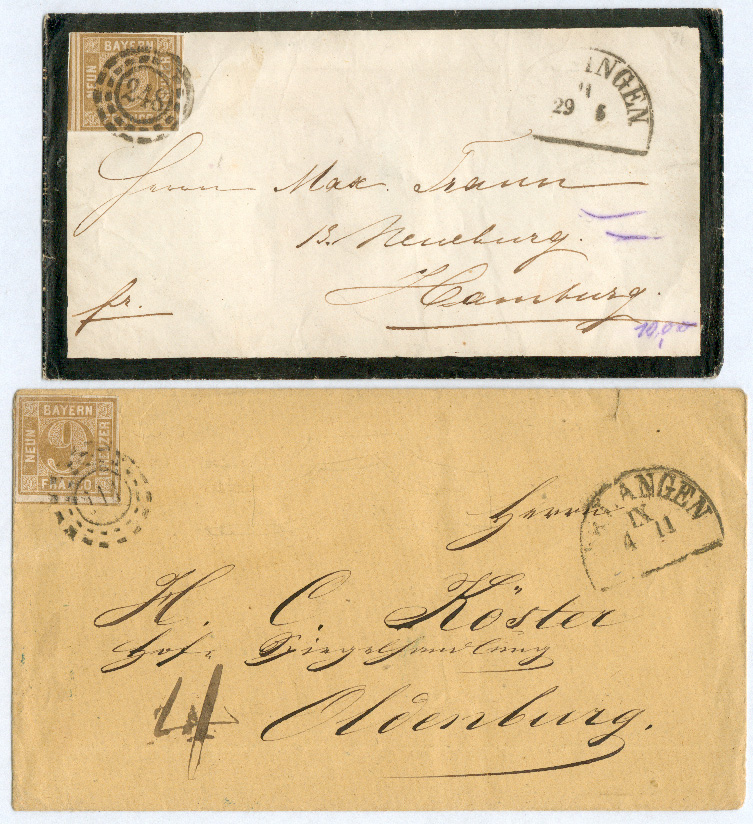 BAYERN
NEUN
248
INGEN
29 5
Herrn Max. Traun
13. Neueburg.
Hamburg.
fr.
10,00
BAYERN
NEUN
9
FRANCO
ANGEN
IX
4 11
Herrn
H. C. Köster
Hof-
Oldenburg.
4